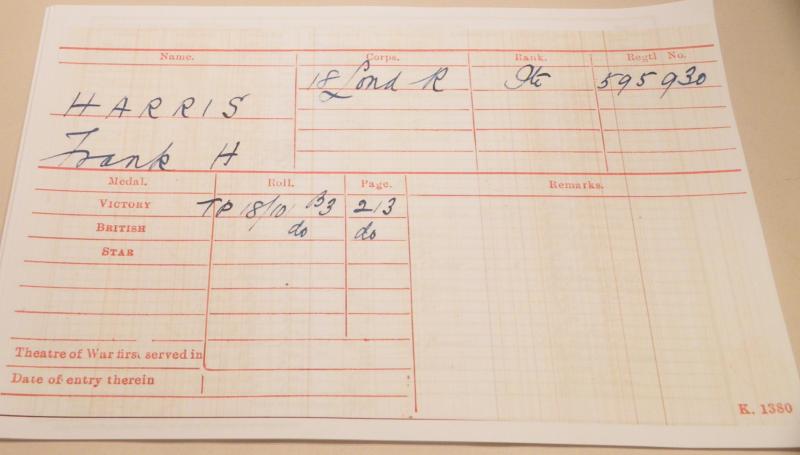 Name. Corps. Rank. Regtl No.
18 Lond R Pte 595930
HARRIS
Frank H
Medal. Roll. Page. Remarks.
VICTORY TP 18/101 B3 213
BRITISH do do
STAR
Theatre of War first served in
Date of entry therein
K. 1380